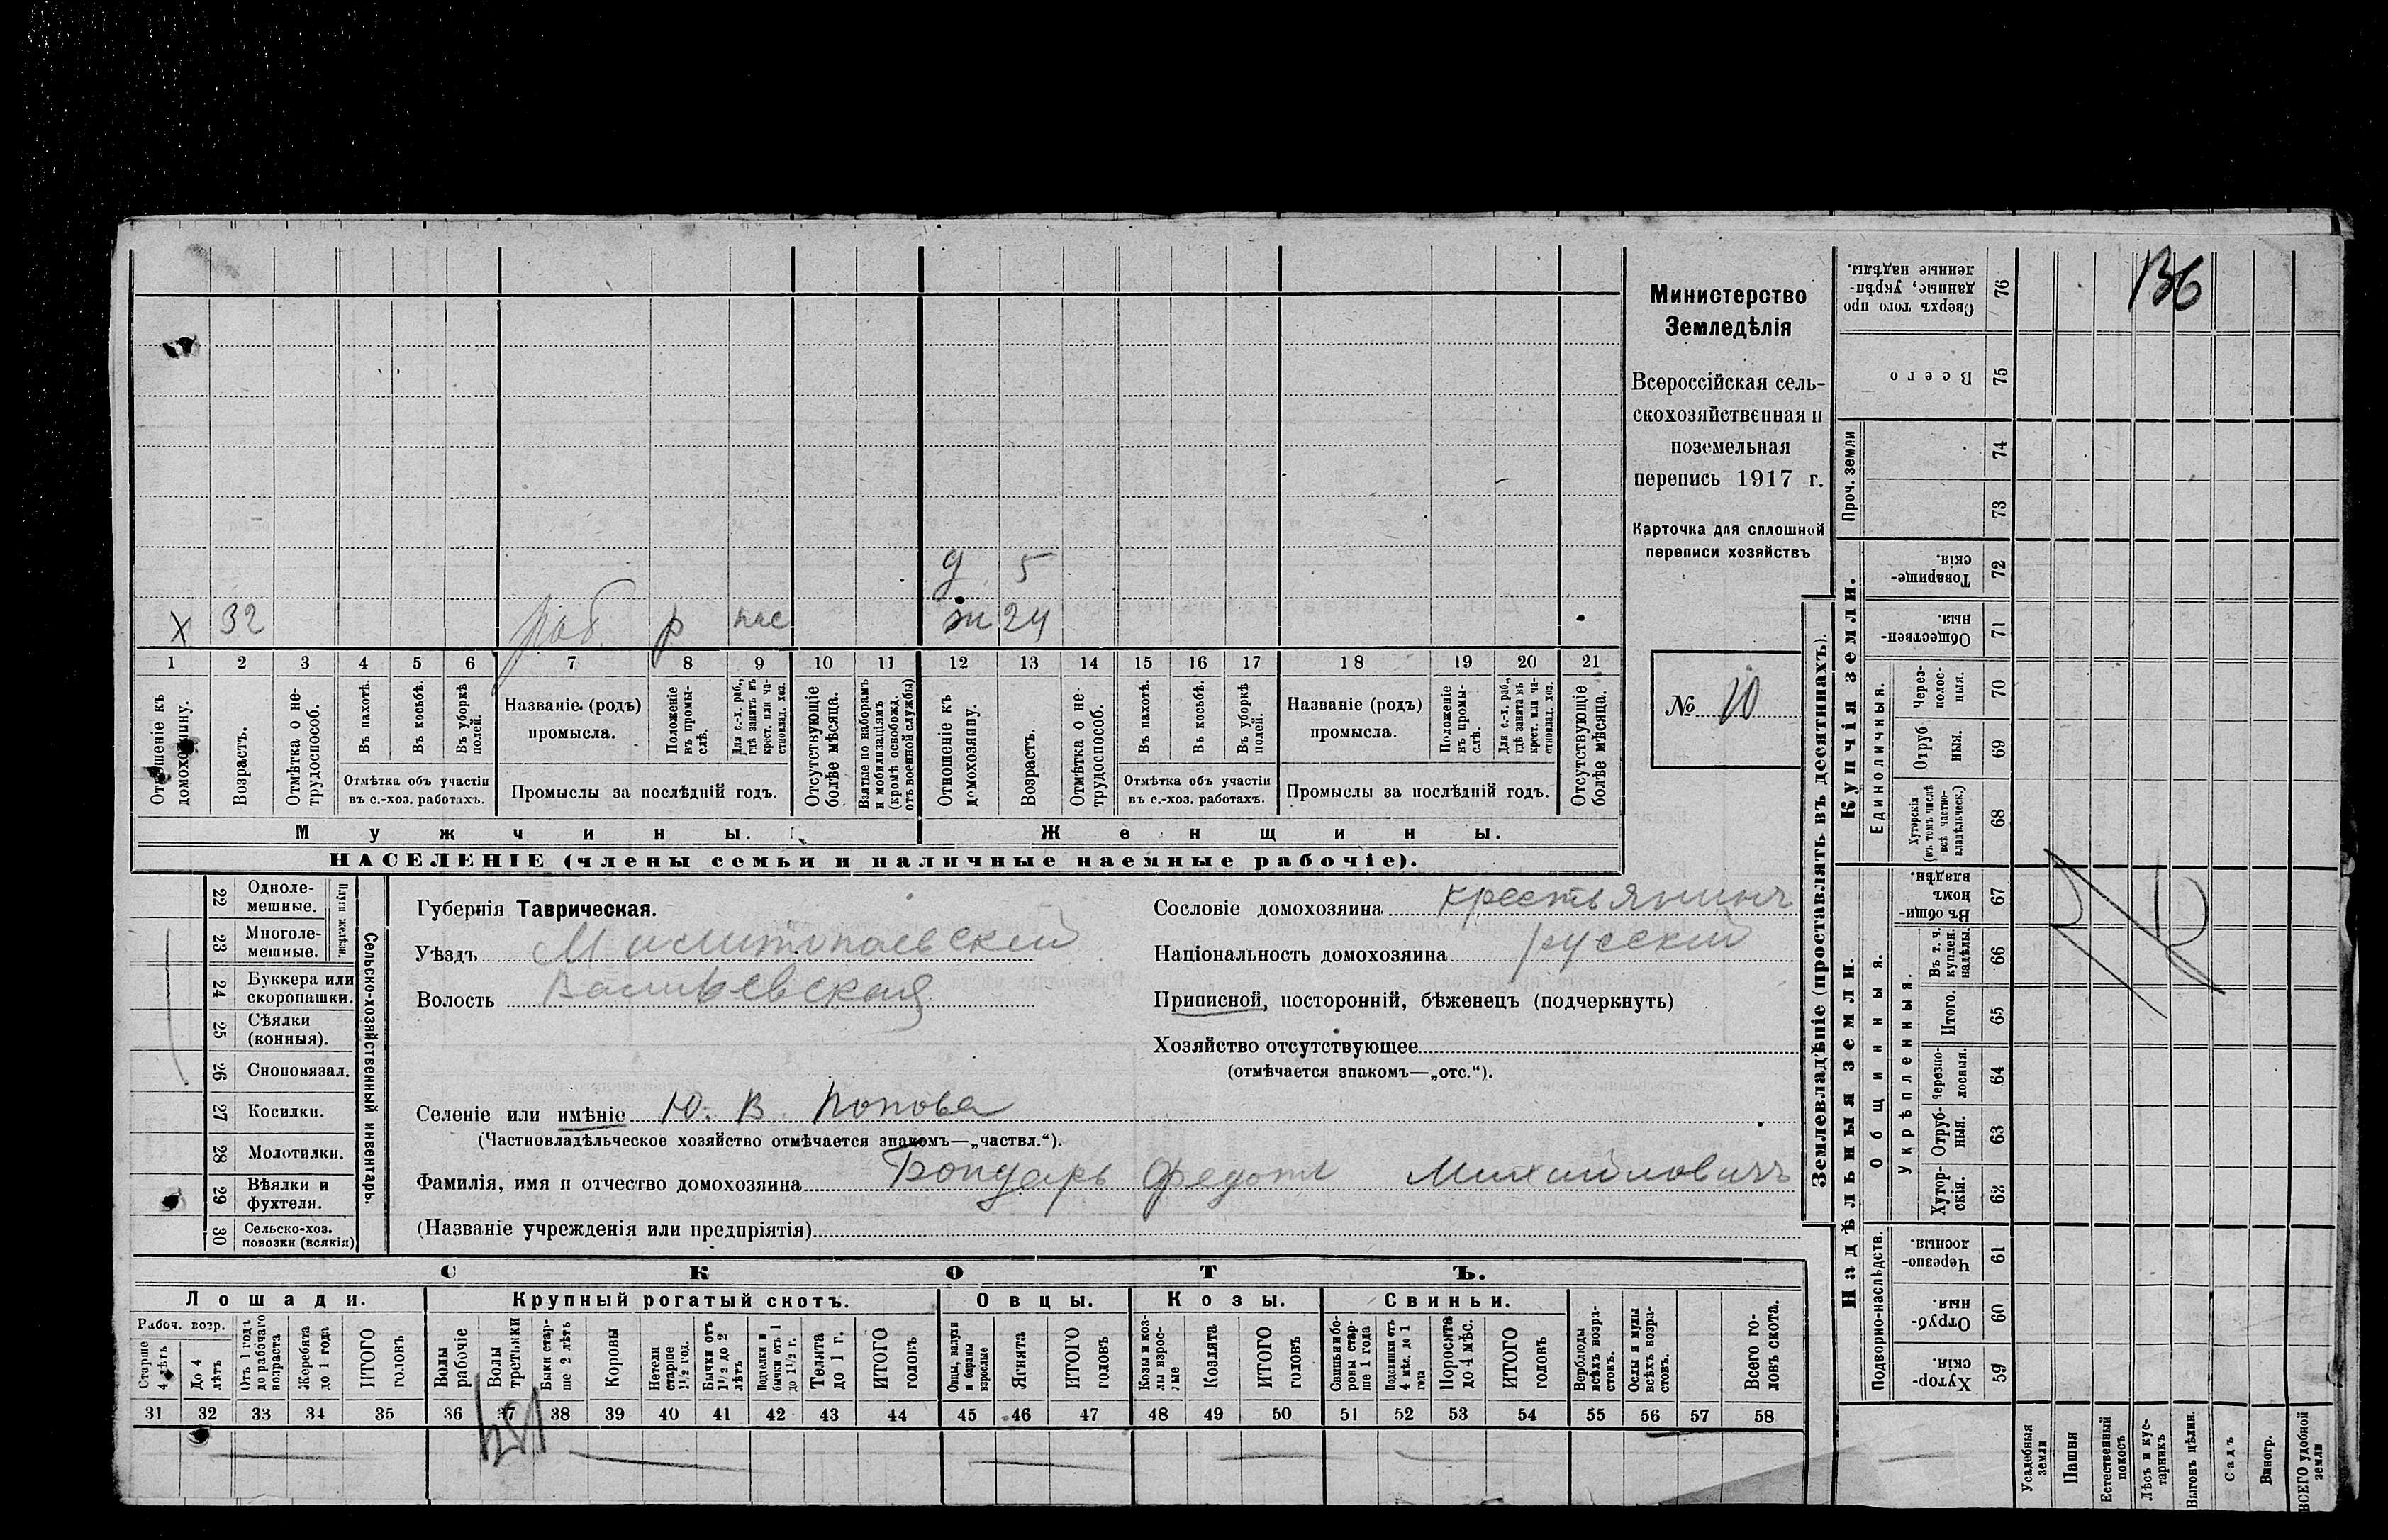 136
д 5
х 32 раб р час ж 24
1 2 3 4 5 6 7 8 9 10 11 12 13 14 15 16 17 18 19 20 21
Отношеніе къ домохозяину.
Возрастъ.
Отмѣтка о нетрудоспособ.
Въ пахотѣ.
Въ косьбѣ.
Въ уборкѣ полей.
Отмѣтка объ участіи
въ с.-хоз. работахъ.
Названіе (родъ)
промысла.
Положеніе въ промыслѣ.
Для с.-х. раб., гдѣ занятъ въ крест. или частновлад. хоз.
Промыслы за послѣдній годъ.
Отсутствующіе болѣе мѣсяца.
Взятые по наборамъ и мобилизаціямъ (кромѣ освобожд. отъ военной службы)
Отношеніе къ домохозяину.
Возрастъ.
Отмѣтка о нетрудоспособ.
Въ пахотѣ.
Въ косьбѣ.
Въ уборкѣ полей.
Отмѣтка объ участіи
въ с.-хоз. работахъ.
Названіе (родъ)
промысла.
Положеніе въ промыслѣ.
Для с.-х. раб., гдѣ занята въ крест. или частновлад. хоз.
Промыслы за послѣдній годъ.
Отсутствующіе болѣе мѣсяца.
Мужчины.
Женщины.
НАСЕЛЕНІЕ (члены семьи и наличные наемные рабочіе).
Министерство
Земледѣлія
Всероссійская сель-
скохозяйственная и
поземельная
перепись 1917 г.
Карточка для сплошной
переписи хозяйствъ
№ 10
22 Одноле-
мешные.
23 Многоле-
мешные.
Плуги желѣзн.
24 Буккера или
скоропашки.
25 Сѣялки
(конныя).
26 Сноповязал.
27 Косилки.
28 Молотилки.
29 Вѣялки и
фухтеля.
30 Сельско-хоз.
повозки (всякія)
Сельско-хозяйственный инвентарь.
Губернія Таврическая.
Уѣздъ Мелитопольскій
Волость Васильевская
Селеніе или имѣніе Ю. В. Попова
(Частновладѣльческое хозяйство отмѣчается знакомъ—„частвл.“).
Фамилія, имя и отчество домохозяина Бондарь Федотъ Михайловичъ
(Названіе учрежденія или предпріятія)
Сословіе домохозяина крестьянинъ
Національность домохозяина русскій
Приписной, посторонній, бѣженецъ (подчеркнуть)
Хозяйство отсутствующее
(отмѣчается знакомъ—„отс.“).
СКОТЪ.
Лошади. Крупный рогатый скотъ. Овцы. Козы. Свиньи.
Рабоч. возр.
Старше 4 лѣтъ
До 4 лѣтъ
Отъ 1 года до рабочаго возраста
Жеребята до 1 года
ИТОГО головъ
Волы рабочіе
Волы третьяки
Быки старше 2 лѣтъ
Коровы
Нетели старше 1 1/2 год.
Бычки отъ 1 1/2 до 2 лѣтъ
Подтелки и бычки отъ 1 до 1 1/2 г.
Телята до 1 г.
ИТОГО головъ
Овцы, валухи и бараны взрослые
Ягнята
ИТОГО головъ
Козы и козлы взрослые
Козлята
ИТОГО головъ
Свиньи и боровы старше 1 года
Подсвинки отъ 4 мѣс. до 1 года
Поросята до 4 мѣс.
ИТОГО головъ
Верблюды всѣхъ возрастовъ.
Ослы и мулы всѣхъ возрастовъ.
Всего головъ скота.
31 32 33 34 35 36 37 38 39 40 41 42 43 44 45 46 47 48 49 50 51 52 53 54 55 56 57 58
Землевладѣніе (проставлять въ десятинахъ).
Надѣльныя земли.
Купчія земли.
Проч. земли
Подворно-наслѣдств.
Общинныя.
Укрѣпленныя.
Единоличныя.
76 Сверхъ того проданные, укрѣпленные надѣлы.
75 Всего
74
73
72 Товарищескія.
71 Общественныя.
70 Черезполосныя.
69 Отрубныя.
68 Хуторскія (въ томъ числѣ всѣ частновладѣльческ.)
67 Въ общинномъ владѣн.
66 Въ т. ч. куплен. надѣлы.
65 Итого.
64 Черезполосныя.
63 Отрубныя.
62 Хуторскія.
61 Черезполосныя.
60 Отрубныя.
59 Хуторскія.
Усадебныя земли
Пашня
Естественный покосъ
Лѣсъ и кустарникъ
Выгонъ цѣлин.
Садъ
Виногр.
ВСЕГО удобной земли